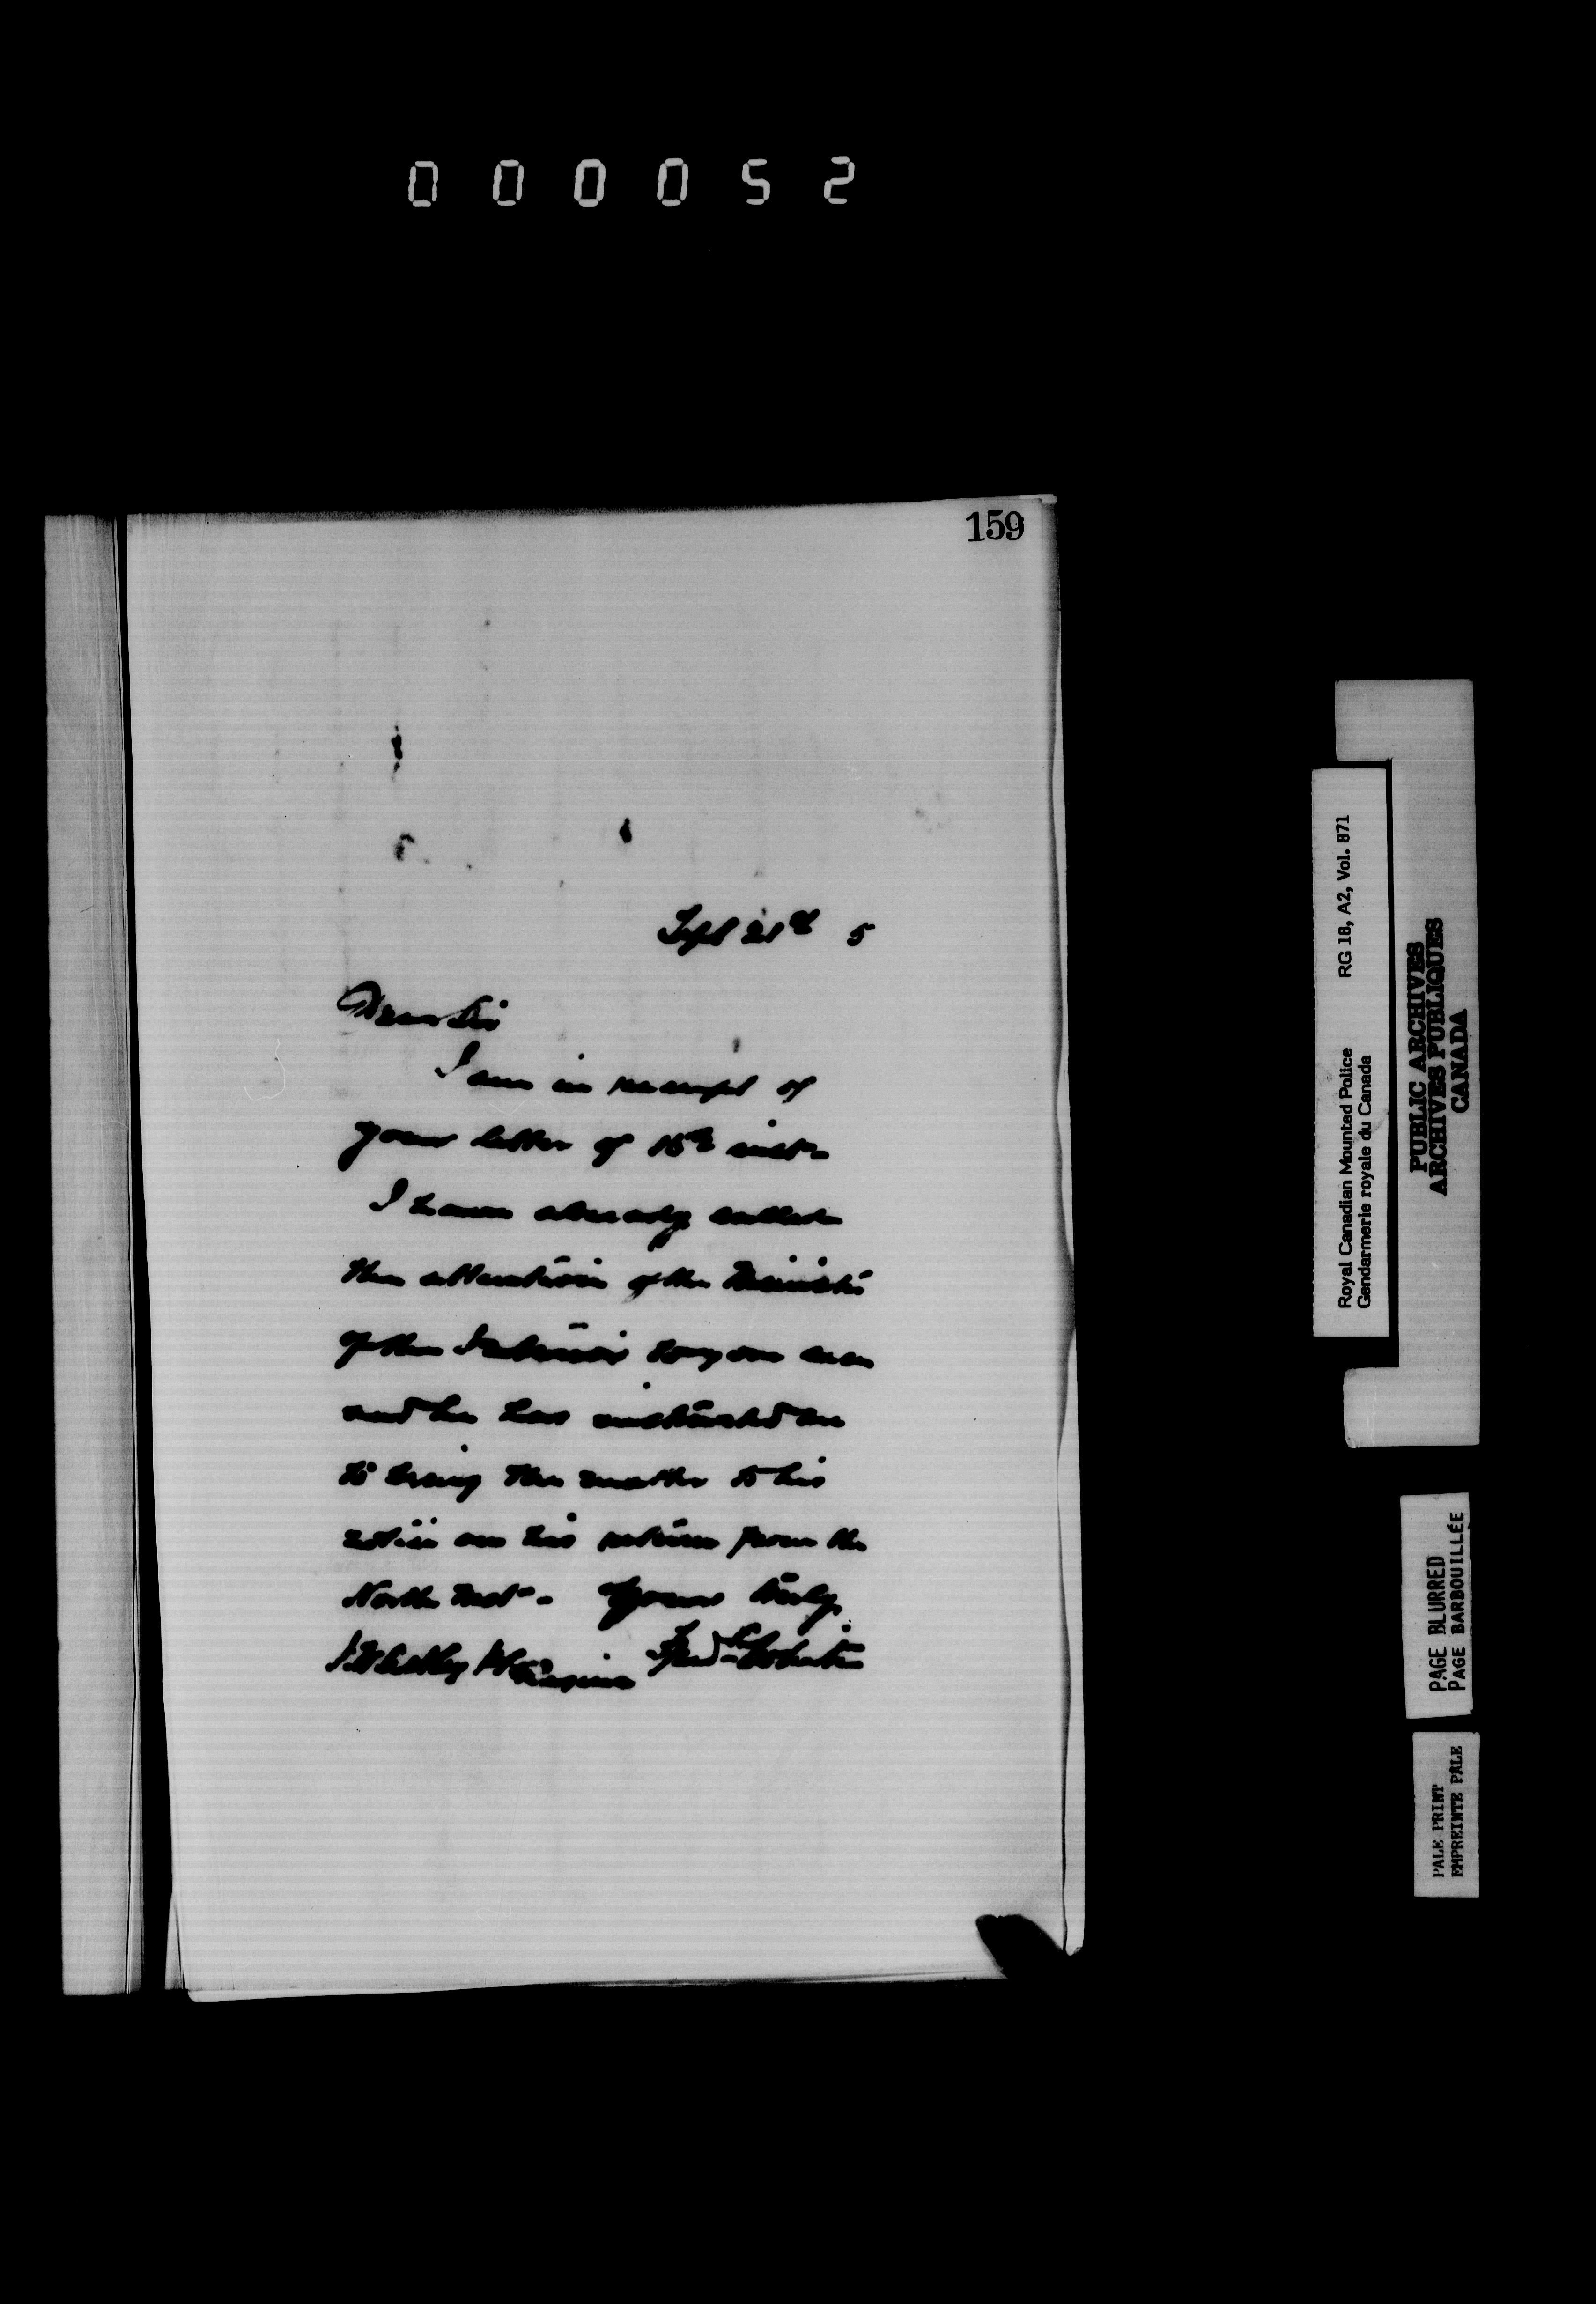 000052
159
Sept 21st 5
Dear Sir
I am in receipt of
your letter of 15th inst-
I have already called
the attention of the Minister
of the Interior to your case
and he has instructed me
to bring the matter to his
notice on his return from the
North West - Yours truly
Fred White
Regina
Royal Canadian Mounted Police RG 18, A2, Vol. 871
Gendarmerie royale du Canada
PUBLIC ARCHIVES
ARCHIVES PUBLIQUES
CANADA
PAGE BLURRED
PAGE BARBOUILLÉE
PALE PRINT
EMPREINTE PÂLE